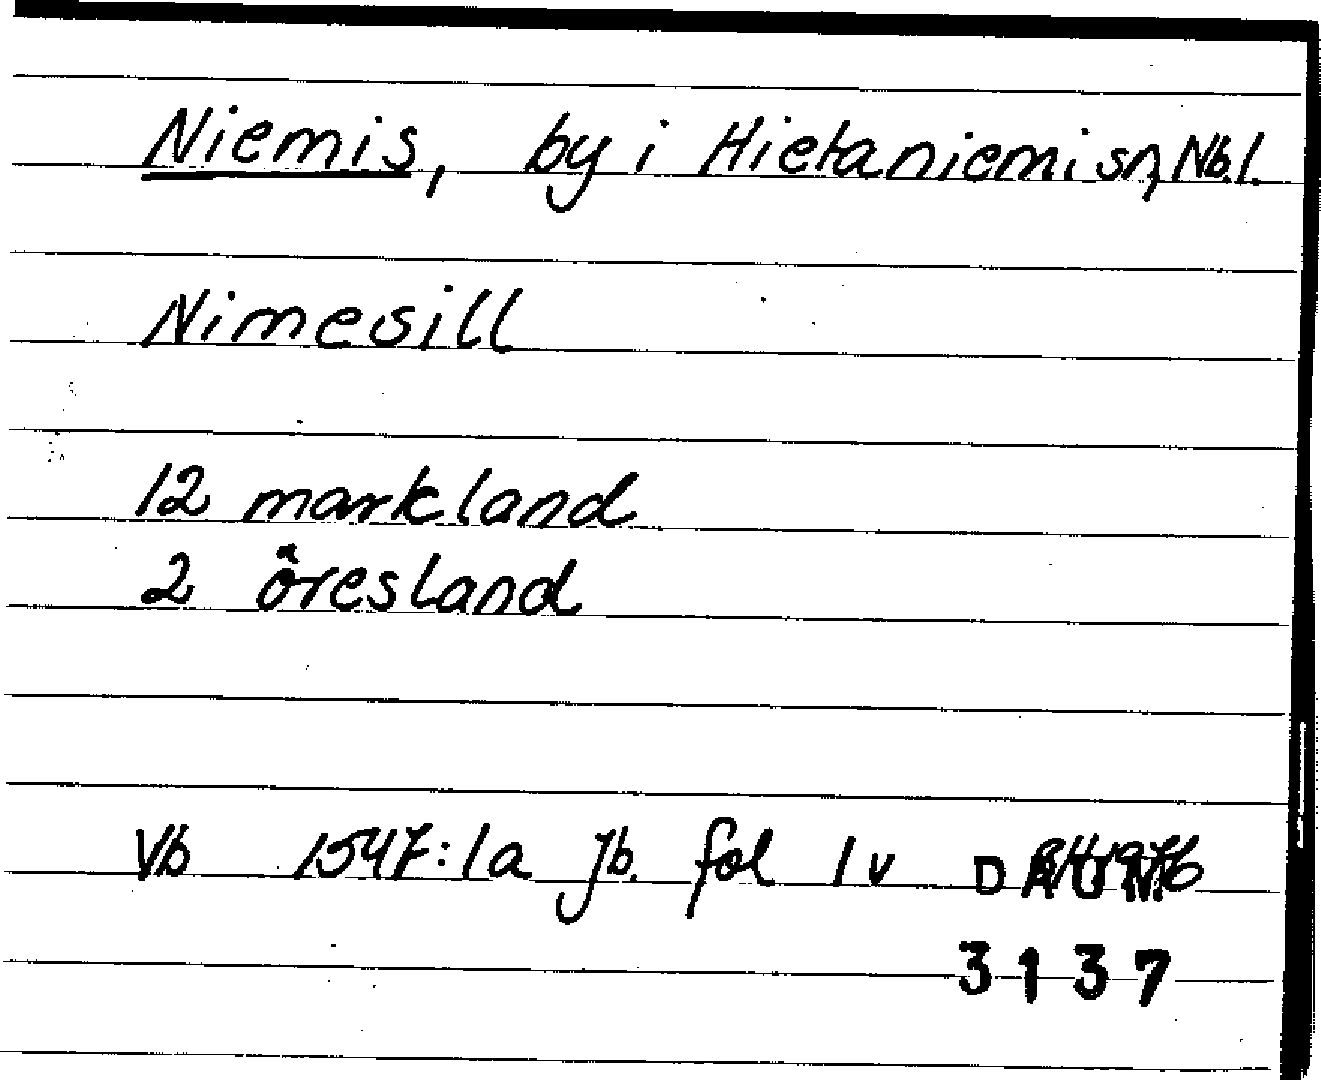 Niemis, by i Hietaniemi sn, Nb.l.
Nimesill
12 markland
2 öresland
Vb 1547:1a jb. fol 1v D
3137